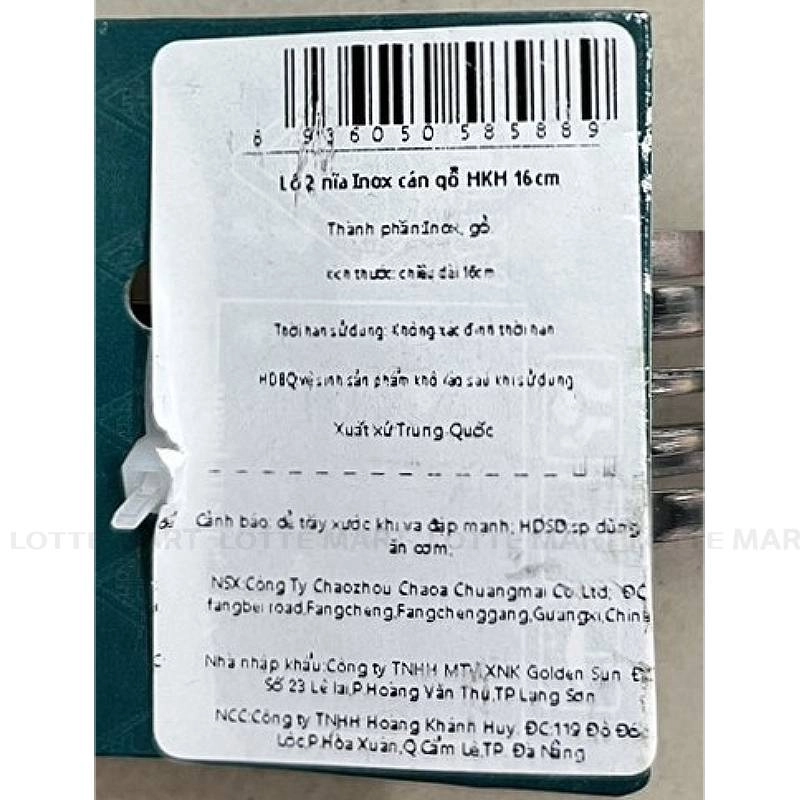 6 936050 585889
Lố 2 nĩa Inox cán gỗ HKH 16cm
Thành phần:Inox, gỗ.
Kích thước: chiều dài 16cm
Thời hạn sử dụng: Không xác định thời hạn
HDBQ:vệ sinh sản phẩm khô ráo sau khi sử dụng
Xuất xứ:Trung Quốc
Cảnh báo: dễ trầy xước khi va đập mạnh; HDSD:sp dùng để
ăn cơm.
NSX:Công Ty Chaozhou Chaoa Chuangmai Co.Ltd; ĐC
fangbei road,Fangcheng,Fangchenggang,Guangxi,China
Nhà nhập khẩu:Công ty TNHH MTV XNK Golden Sun
Số 23 Lê lai,P.Hoàng Văn Thụ,TP Lạng Sơn
NCC:Công ty TNHH Hoàng Khánh Huy, ĐC:119 Đô Đốc
Lộc,P.Hòa Xuân,Q.Cẩm Lệ,TP. Đà Nẵng
LOTTE MART LOTTE MART LOTTE MART LOTTE MAR